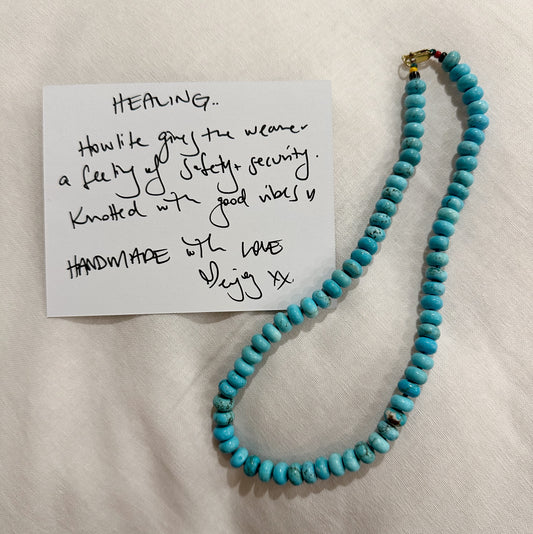 HEALING..
Howlite gives the wearer
a feeling of safety + security.
Knotted with good vibes
HANDMADE with LOVE
xx.